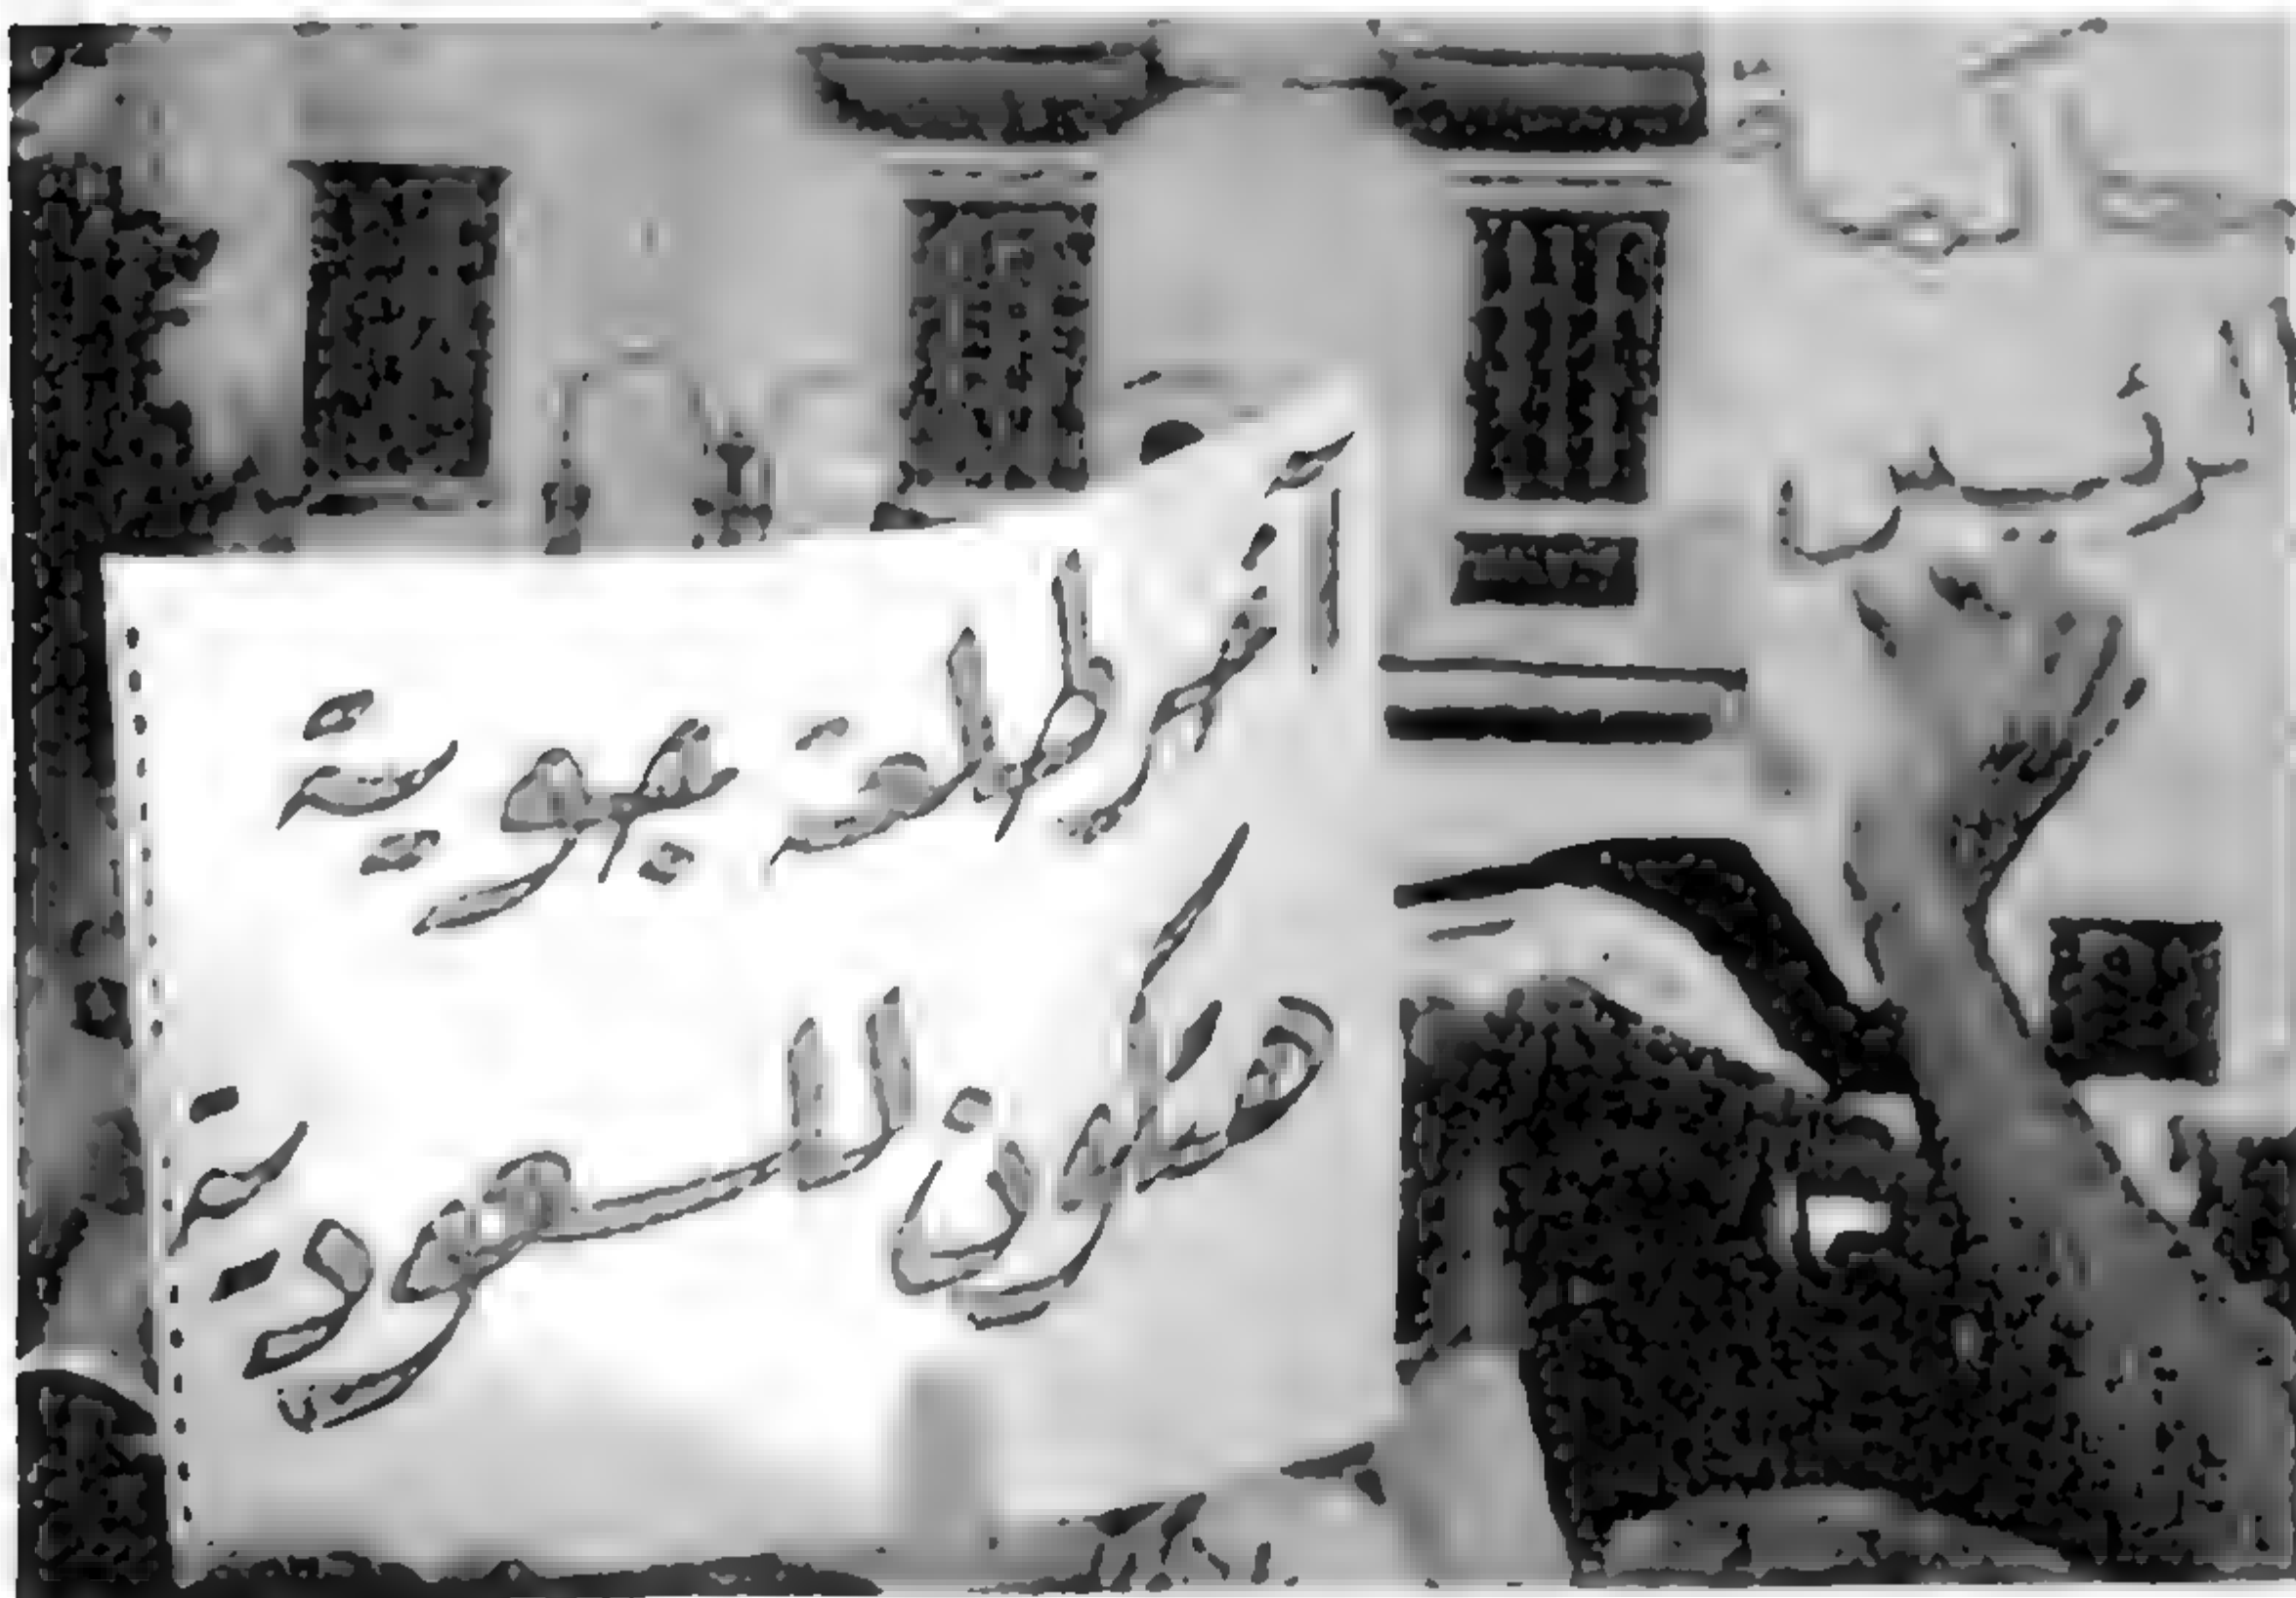 الرئيس
آخر طلعة جوية
هتكون للسعودية